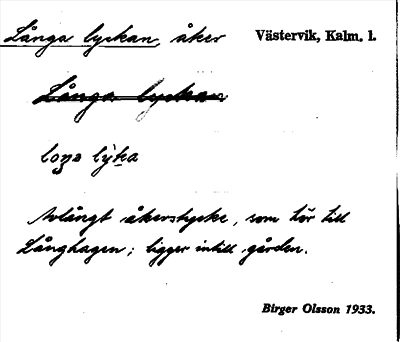 Långa lyckan, åker Västervik, Kalm. l.
Långa lyckan
loŋa lyka
Avlångt åkerstycke, som hör till
Långhagen; ligger intill gården.
Birger Olsson 1933.